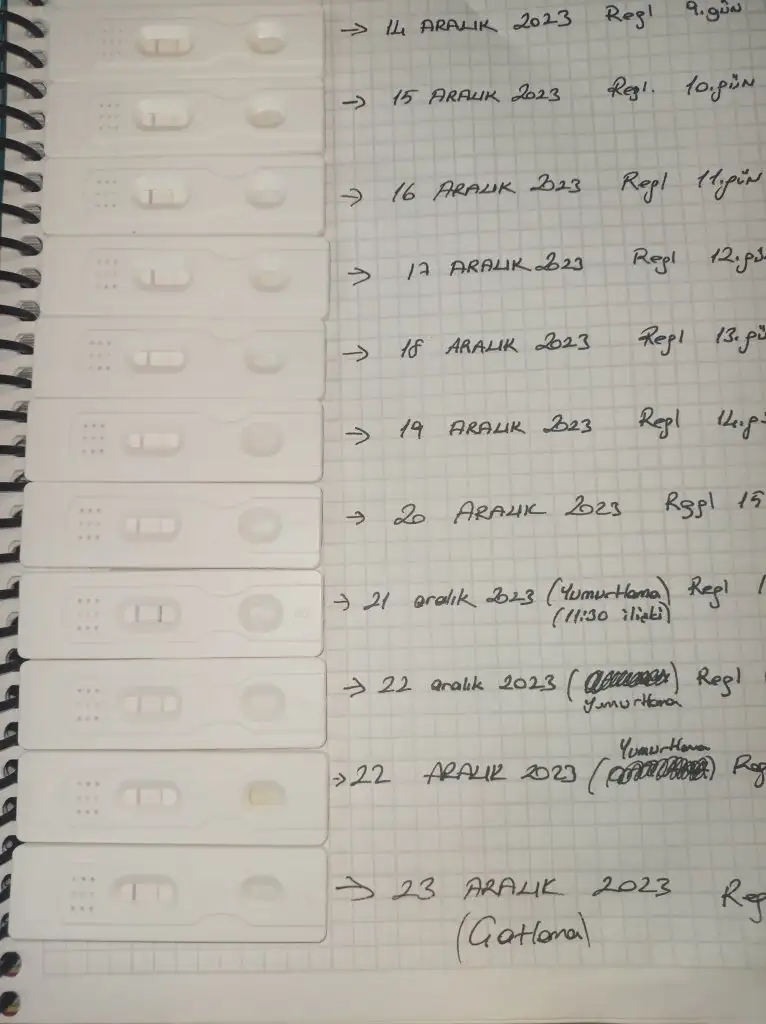 → 14 ARALIK 2023 Regl 9.gün
→ 15 ARALIK 2023 Regl. 10.gün
→ 16 ARALIK 2023 Regl 11.gün
→ 17 ARALIK 2023 Regl 12.gü
→ 18 ARALIK 2023 Regl 13.gü
→ 19 ARALIK 2023 Regl 14.g
→ 20 ARALIK 2023 Regl 15
→ 21 aralık 2023 (Yumurtlama) Regl 1
(11:30 ilişki)
→ 22 aralık 2023 ( ) Regl
Yumurtlama
Yumurtlama
→ 22 ARALIK 2023 ( ) Reg
→ 23 ARALIK 2023 Reg
(Çatlama)